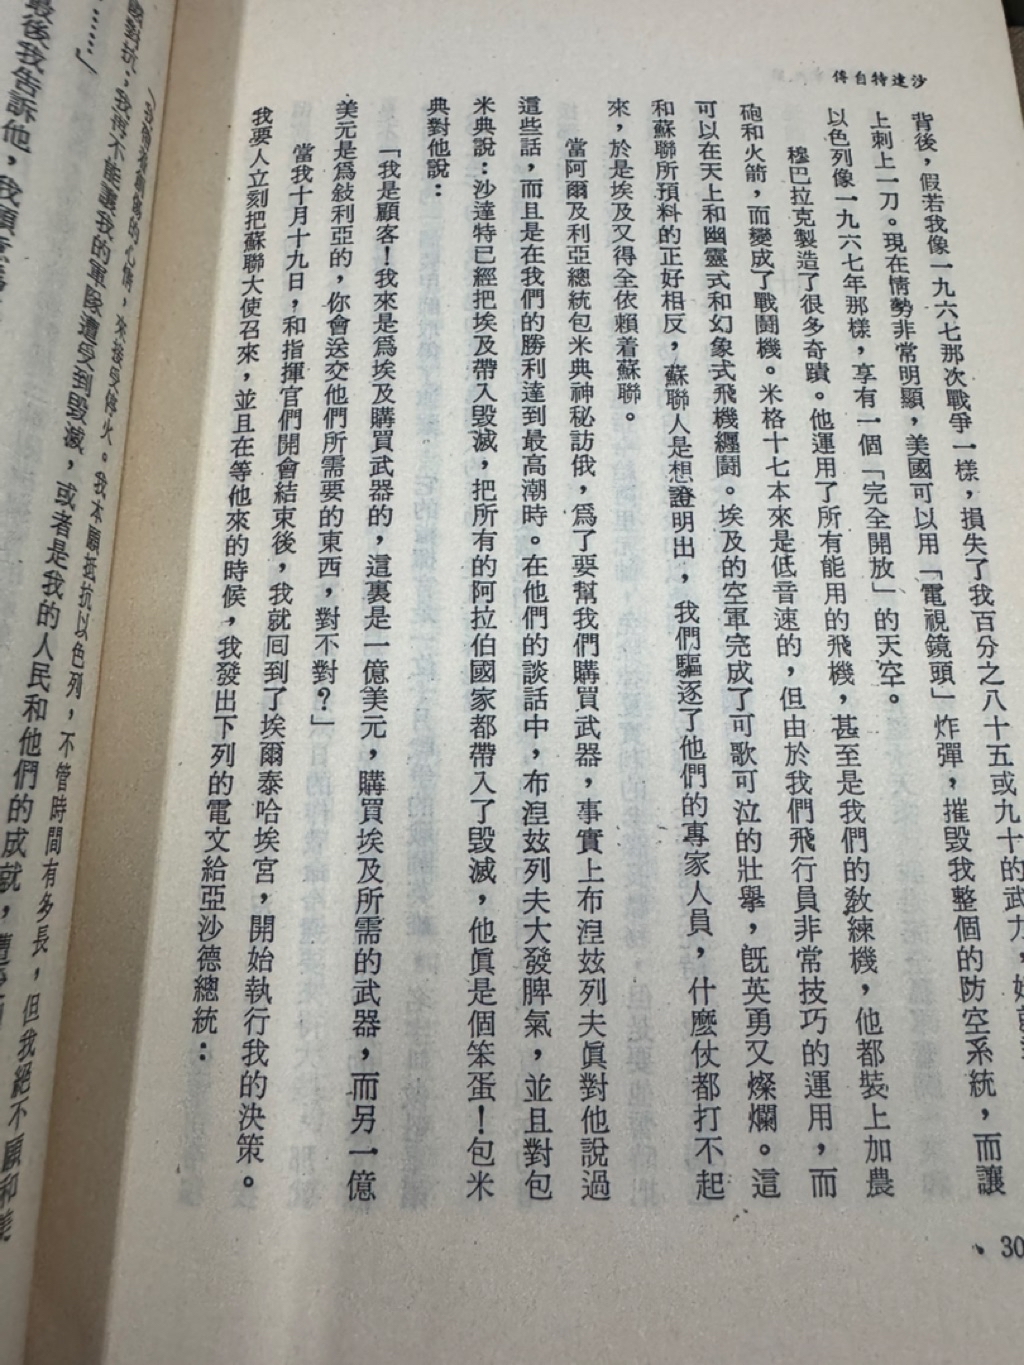 沙達特自傳
背後，假若我像一九六七那次戰爭一樣，損失了我百分之八十五或九十的武力，
上刺上一刀。現在情勢非常明顯，美國可以用「電視鏡頭」炸彈，摧毀我整個的防空系統，而讓
以色列像一九六七年那樣，享有一個「完全開放」的天空。
穆巴拉克製造了很多奇蹟。他運用了所有能用的飛機，甚至是我們的教練機，他都裝上加農
砲和火箭，而變成了戰鬪機。米格十七本來是低音速的，但由於我們飛行員非常技巧的運用，而
可以在天上和幽靈式和幻象式飛機纒鬪。埃及的空軍完成了可歌可泣的壯舉，旣英勇又燦爛。這
和蘇聯所預料的正好相反，蘇聯人是想證明出，我們驅逐了他們的專家人員，什麼仗都打不起
來，於是埃及又得全依賴着蘇聯。
當阿爾及利亞總統包米典神秘訪俄，爲了要幫我們購買武器，事實上布涅玆列夫眞對他說過
這些話，而且是在我們的勝利達到最高潮時。在他們的談話中，布涅玆列夫大發脾氣，並且對包
米典說：沙達特已經把埃及帶入毀滅，把所有的阿拉伯國家都帶入了毀滅，他眞是個笨蛋！包米
典對他說：
「我是顧客！我來是爲埃及購買武器的，這裏是一億美元，購買埃及所需的武器，而另一億
美元是爲敍利亞的，你會送交他們所需要的東西，對不對？」
當我十月十九日，和指揮官們開會結束後，我就囘到了埃爾泰哈埃宮，開始執行我的決策。
我要人立刻把蘇聯大使召來，並且在等他來的時候，我發出下列的電文給亞沙德總統：
30
來接受停火。我本願抵抗以色列，不管時間有多長，但我絕不願和美
對抗；我將不能讓我的軍隊遭受到毀滅，或者是我的人民和他們的成就，
……」
最後我告訴他，我願意